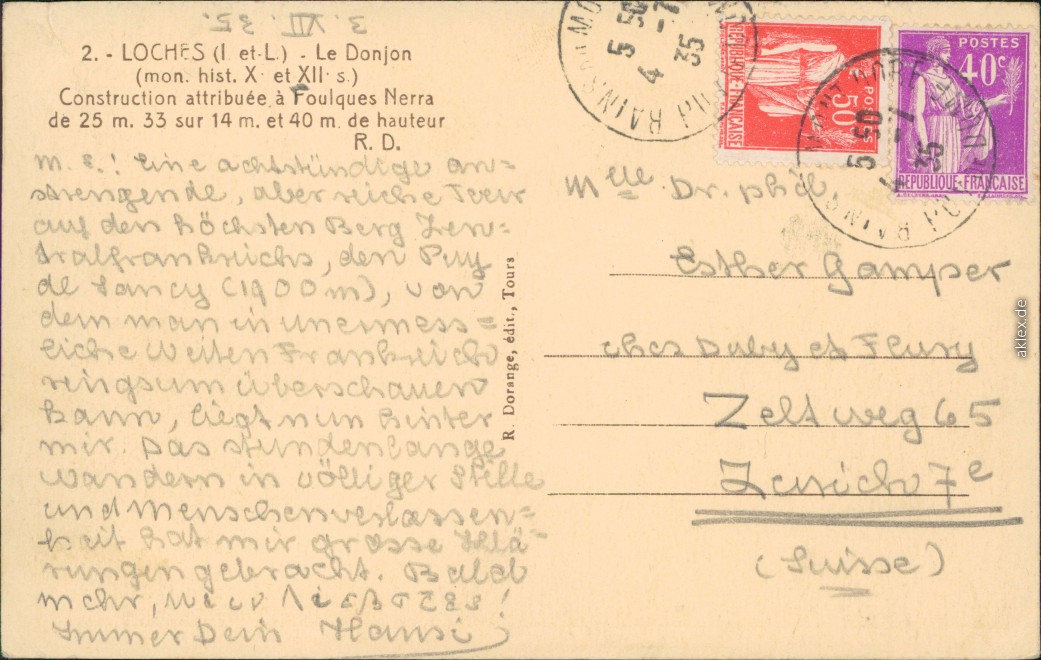 3. VII. 35.
2. - LOCHES (I.-et-L.) - Le Donjon
(mon. hist. X· et XII· s.)
Construction attribuée à Foulques Nerra
de 25 m. 33 sur 14 m. et 40 m. de hauteur
R. D.
M. E.! Eine achtstündige an=
strengende, aber reiche Tour
auf den höchsten Berg Zen=
tralfrankreichs, den Puy
de Sancy (1900m), von
dem man in unermess=
liche Weiten Frankreich
ringsum überschauen
kann, liegt nun hinter
mir. Das stundenlange
Wandern in völliger Stille
und Menschenverlassen=
heit hat mir grosse Klä=
rungen gebracht. Bald
mehr,
Immer Dein Hansi
R. Dorange, édit., Tours
POSTES
50c
RÉPUBLIQUE FRANÇAISE
POSTES
40c
RÉPUBLIQUE FRANÇAISE
5 50
4 -7
35
5 50
4 -7
35
Mlle Dr. phil.
Esther Gamper
chez Duby et Fleury
Zeltweg 65
Zurich 7e
(Suisse)
aklex.de